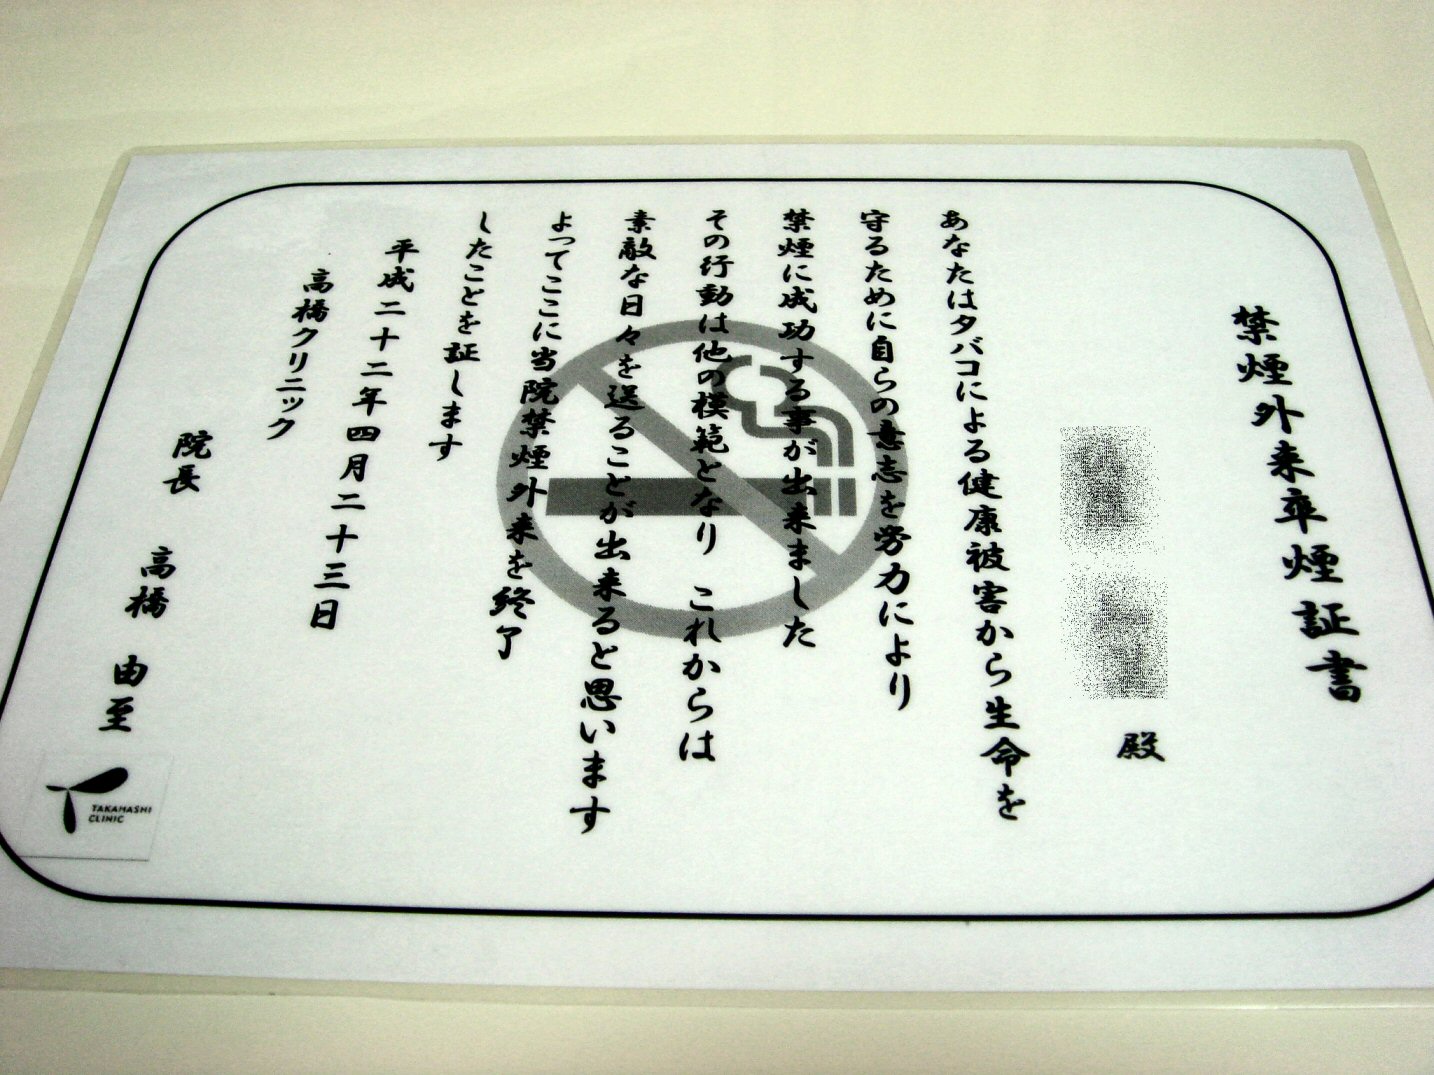 禁煙外来卒煙証書
殿
あなたはタバコによる健康被害から生命を
守るために自らの意志を労力により
禁煙に成功する事が出来ました
その行動は他の模範となり これからは
素敵な日々を送ることが出来ると思います
よってここに当院禁煙外来を終了
したことを証します
平成二十二年四月二十三日
高橋クリニック
院長 高橋 由至
TAKAHASHI
CLINIC